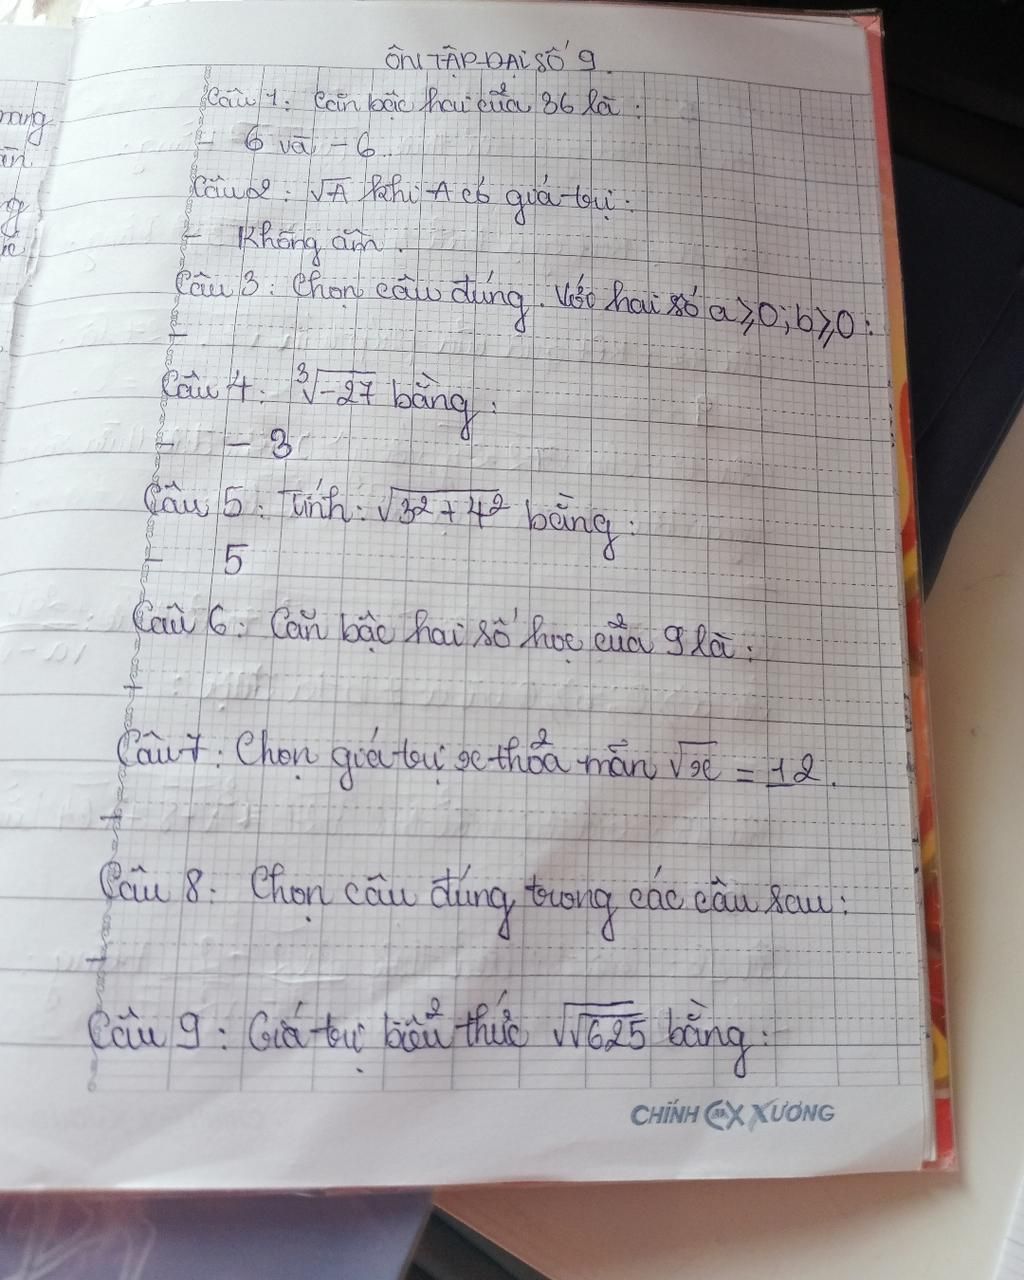 rang
ÔN TẬP ĐẠI SỐ 9.
Câu 1: Căn bậc hai của 36 là:
- 6 và - 6.
Câu 2: √A khi A có giá trị:
- Không âm.
Câu 3: Chọn câu đúng. Với hai số a ≥ 0; b ≥ 0:
-
Câu 4: ∛-27 bằng:
- - 3
Câu 5: Tính: √3² + 4² bằng:
- 5
Câu 6: Căn bậc hai số học của 9 là:
-
Câu 7: Chọn giá trị x thỏa mãn √x = 12.
-
Câu 8: Chọn câu đúng trong các câu sau:
-
Câu 9: Giá trị biểu thức √√625 bằng:
CHÍNH XƯƠNG